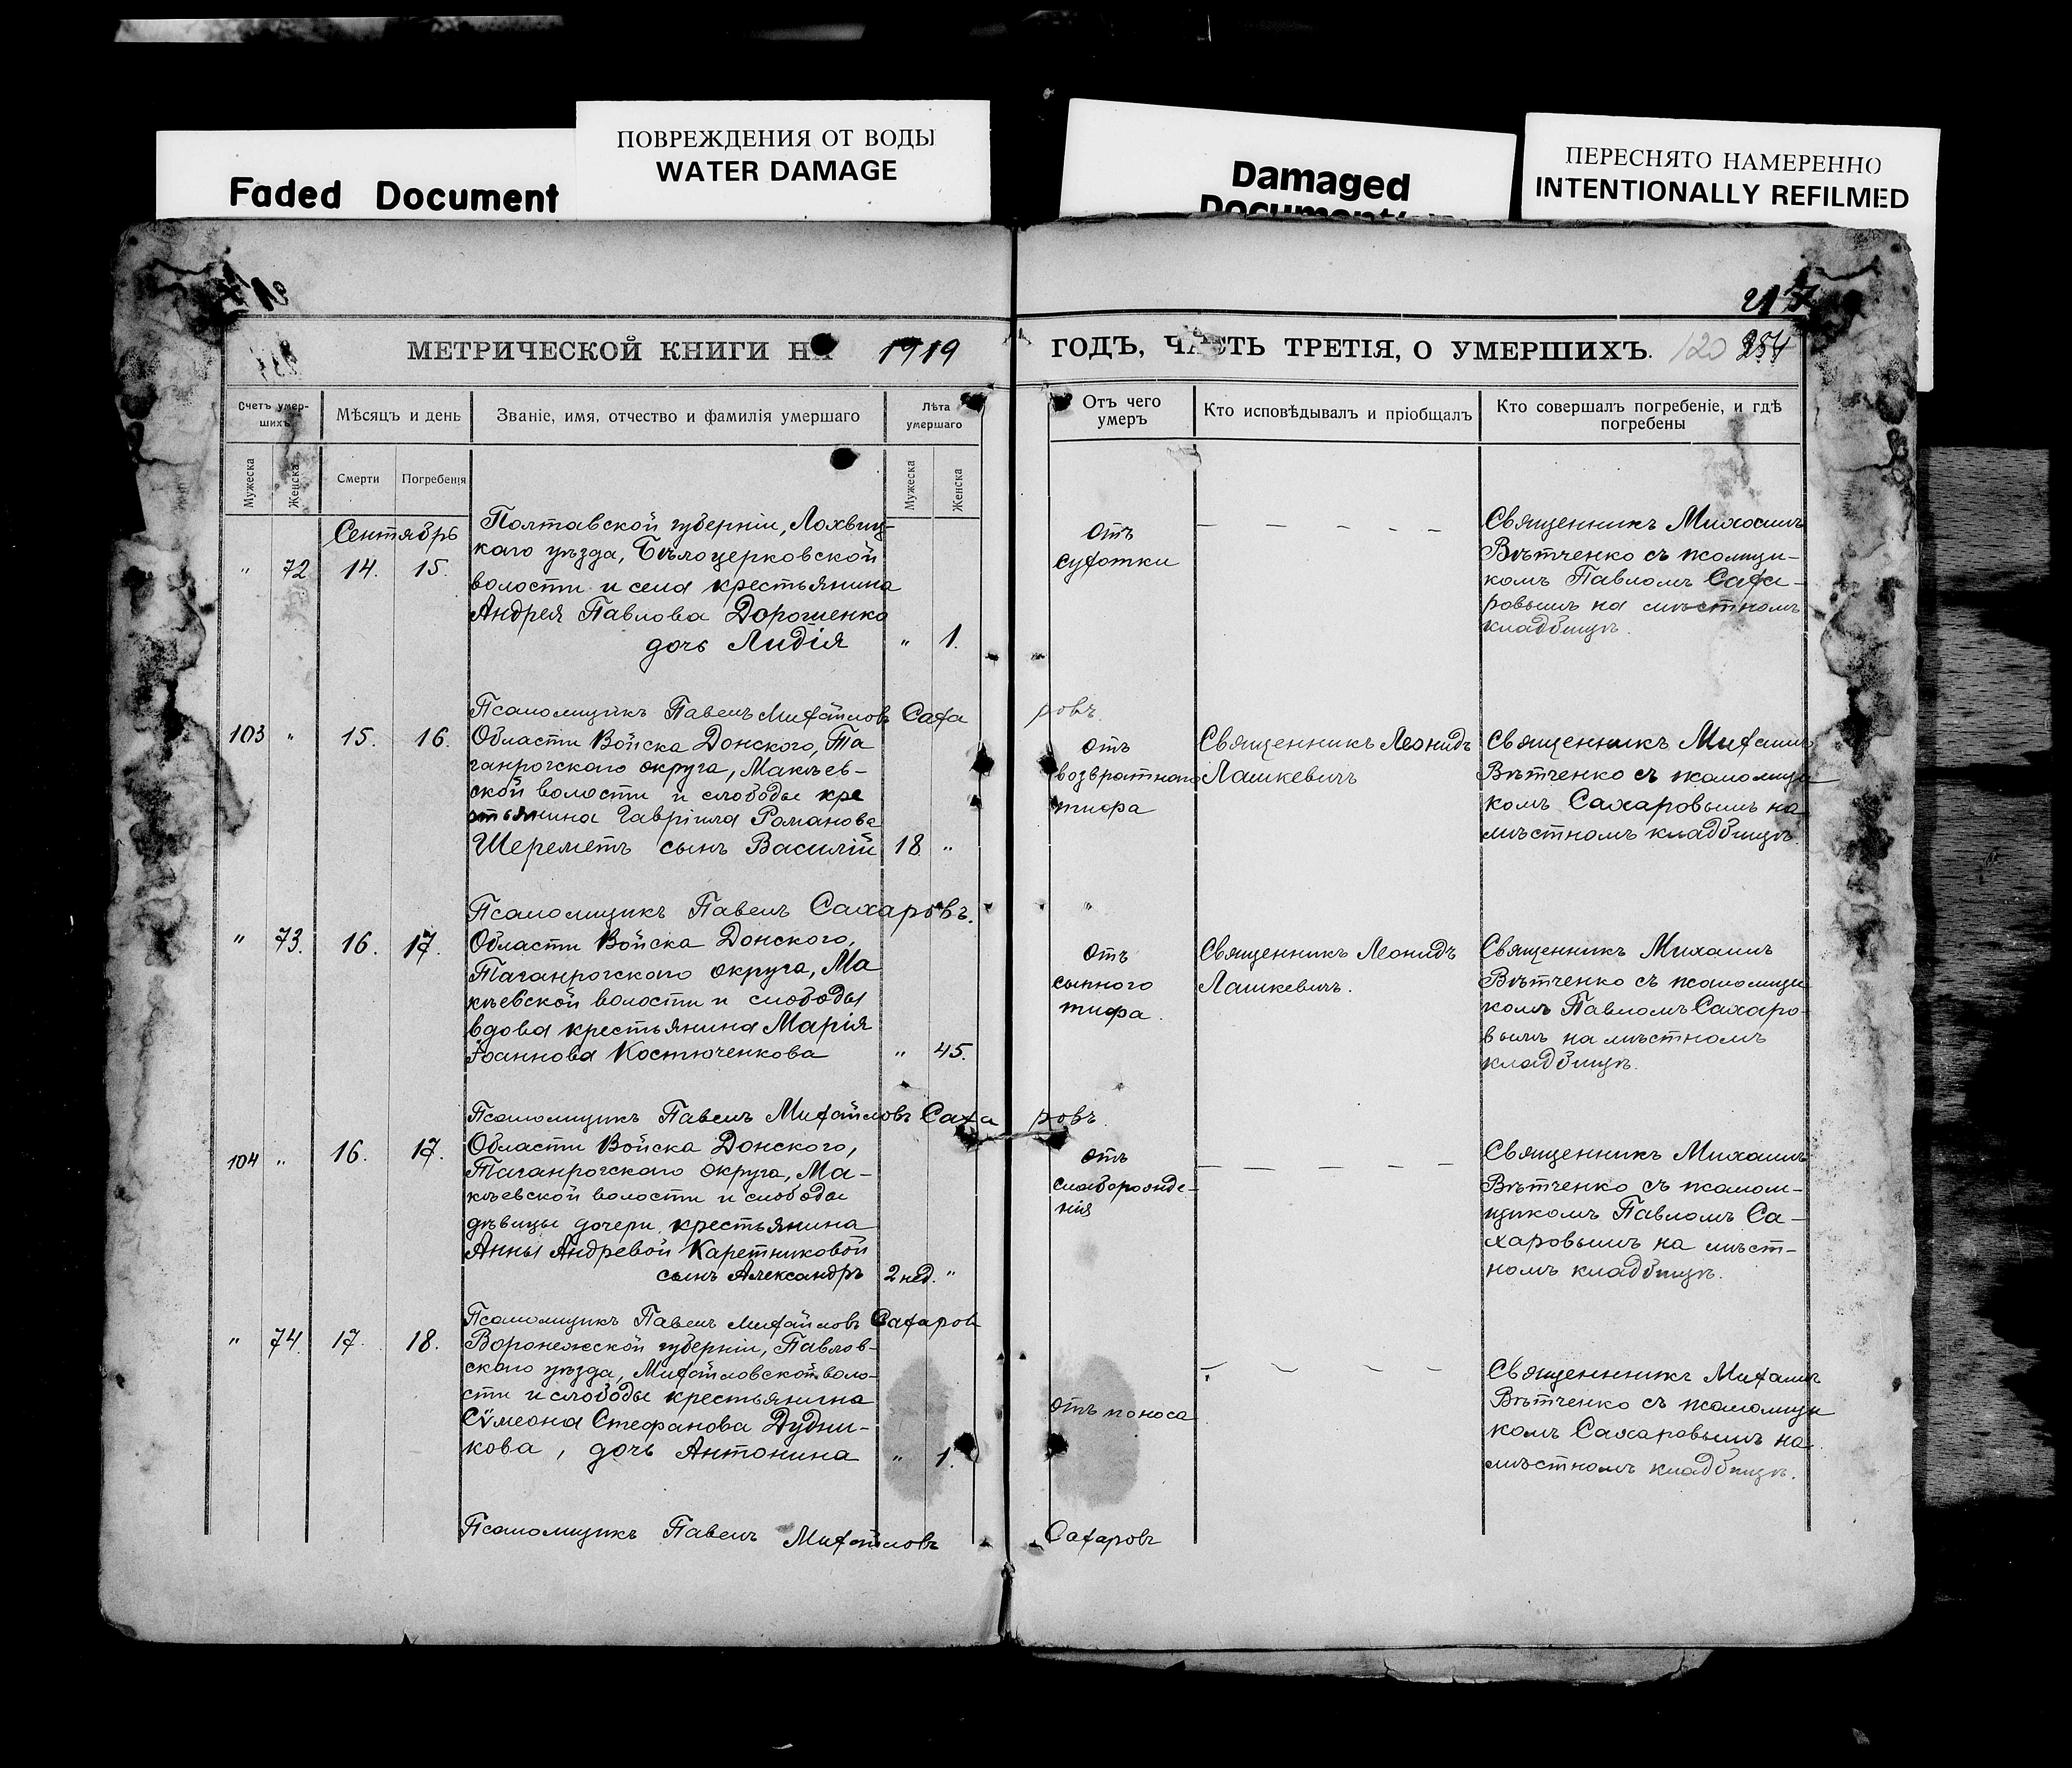 ПОВРЕЖДЕНИЯ ОТ ВОДЫ
WATER DAMAGE
Faded Document
Damaged
Document
ПЕРЕСНЯТО НАМЕРЕННО
INTENTIONALLY REFILMED
МЕТРИЧЕСКОЙ КНИГИ НА 1919
ГОДЪ, ЧАСТЬ ТРЕТІЯ, О УМЕРШИХЪ. 120 254
Счетъ умер-
шихъ
Мѣсяцъ и день
Званіе, имя, отчество и фамилія умершаго
Лѣта
умершаго
Отъ чего
умеръ
Кто исповѣдывалъ и пріобщалъ
Кто совершалъ погребеніе, и гдѣ
погребены
Мужеска
Женска
Смерти
Погребенія
Мужеска
Женска
Сентябрь
" 72 14. 15.
Полтавской губерніи, Лохвиц-
каго уѣзда, Бѣлоцерковской
волости и села крестьянина
Андрея Павлова Дорошенко
дочь Лидія " 1.
отъ
сухотки
Священникъ Михаилъ
Вѣтченко съ псаломщи-
комъ Павломъ Саха-
ровымъ на мѣстномъ
кладбищѣ.
Псаломщикъ Павелъ Михайловъ Саха
ровъ.
103 " 15. 16.
Области Войска Донского, Та
ганрогскаго округа, Макѣев-
ской волости и слободы кре
стьянина Гавріила Романова
Шереметъ сынъ Василій 18 "
отъ
возвратнаго
тифа
Священникъ Леонидъ
Лашкевичъ
Священникъ Михаилъ
Вѣтченко съ псаломщи
комъ Сахаровымъ на
мѣстномъ кладбищѣ.
Псаломщикъ Павелъ Сахаровъ.
" 73. 16. 17.
Области Войска Донского,
Таганрогскаго округа, Ма
кѣевской волости и слободы
вдова крестьянина Марія
Іоаннова Костюченкова " 45.
отъ
сыпного
тифа.
Священникъ Леонидъ
Лашкевичъ.
Священникъ Михаилъ
Вѣтченко съ псаломщи
комъ Павломъ Сахаро
вымъ на мѣстномъ
кладбищѣ.
Псаломщикъ Павелъ Михайловъ Саха
ровъ.
104 " 16. 17.
Области Войска Донского,
Таганрогскаго округа, Ма-
кѣевской волости и слободы
дѣвицы дочери крестьянина
Анны Андревой Каретниковой
сынъ Александръ 2 нед. "
отъ
слаборожде-
нія
Священникъ Михаилъ
Вѣтченко съ псалом-
щикомъ Павломъ Са-
харовымъ на мѣст-
номъ кладбищѣ.
Псаломщикъ Павелъ Михайловъ Сахаров
" 74. 17. 18.
Воронежской губерніи, Павлов-
скаго уѣзда, Михайловской воло-
сти и слободы крестьянина
Сѵмеона Стефанова Дудни-
кова, дочь Антонина " 1.
отъ поноса
Священникъ Михаилъ
Вѣтченко съ псаломщи
комъ Сахаровымъ на
мѣстномъ кладбищѣ.
Псаломщикъ Павелъ Михайловъ
Сахаровъ